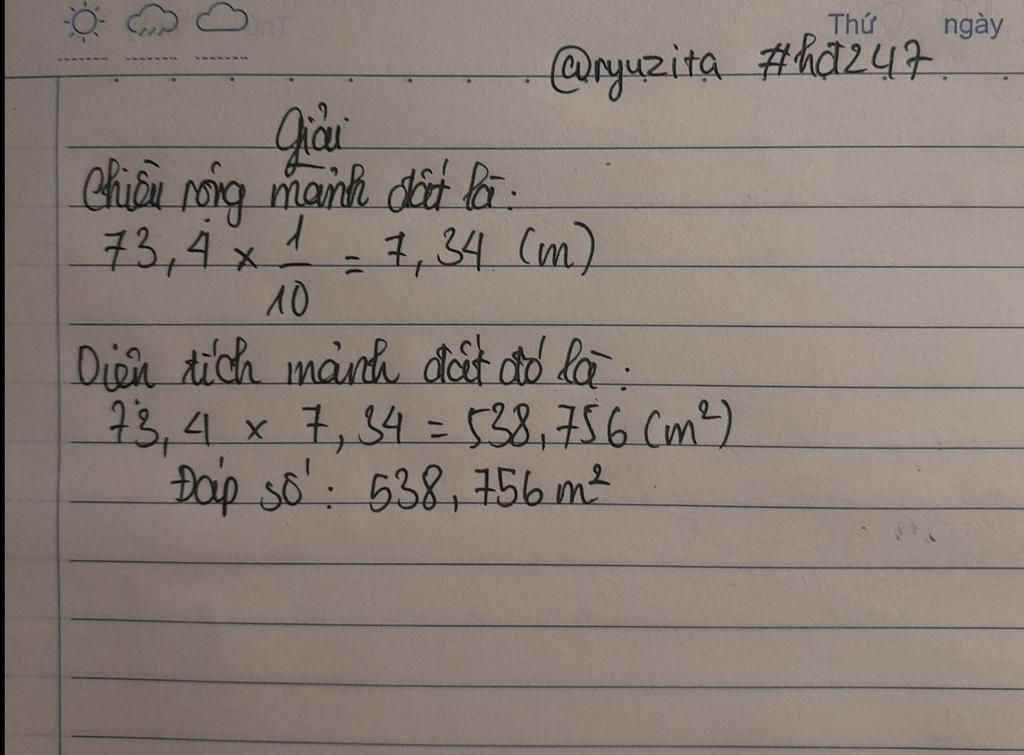 Thứ ngày
@ryuzita #hd247
Giải
Chiều rộng mảnh đất là:
73,4 x 1/10 = 7,34 (m)
Diện tích mảnh đất đó là:
73,4 x 7,34 = 538,756 (m²)
Đáp số: 538,756 m²